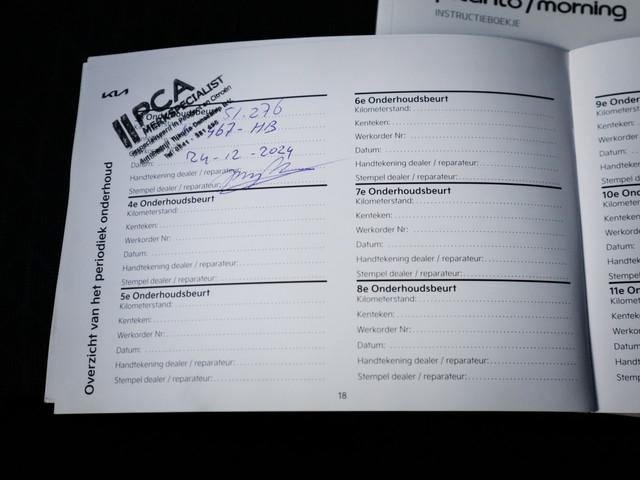 picanto/morning
INSTRUCTIEBOEKJE
KIA
PCA
MERKSPECIALIST
Onderhoudsbeurt
51.276
967-HB
Datum:
24-12-2024
Handtekening dealer / reparateur:
Stempel dealer / reparateur:
Overzicht van het periodiek onderhoud
4e Onderhoudsbeurt
Kilometerstand:
Kenteken:
Werkorder Nr:
Datum:
Handtekening dealer / reparateur:
Stempel dealer / reparateur:
5e Onderhoudsbeurt
Kilometerstand:
Kenteken:
Werkorder Nr:
Datum:
Handtekening dealer / reparateur:
Stempel dealer / reparateur:
6e Onderhoudsbeurt
Kilometerstand:
Kenteken:
Werkorder Nr:
Datum:
Handtekening dealer / reparateur:
Stempel dealer / reparateur:
7e Onderhoudsbeurt
Kilometerstand:
Kenteken:
Werkorder Nr:
Datum:
Handtekening dealer / reparateur:
Stempel dealer / reparateur:
8e Onderhoudsbeurt
Kilometerstand:
Kenteken:
Werkorder Nr:
Datum:
Handtekening dealer / reparateur:
Stempel dealer / reparateur:
18
9e On
Kilomet
Kenteke
Werkor
Datum:
Handte
Stempel d
10e On
Kilomete
Kenteke
Werkord
Datum:
Handtek
Stempel
11e On
Kilomete
Kenteke
Werkor
Datum:
Handte
Stemp